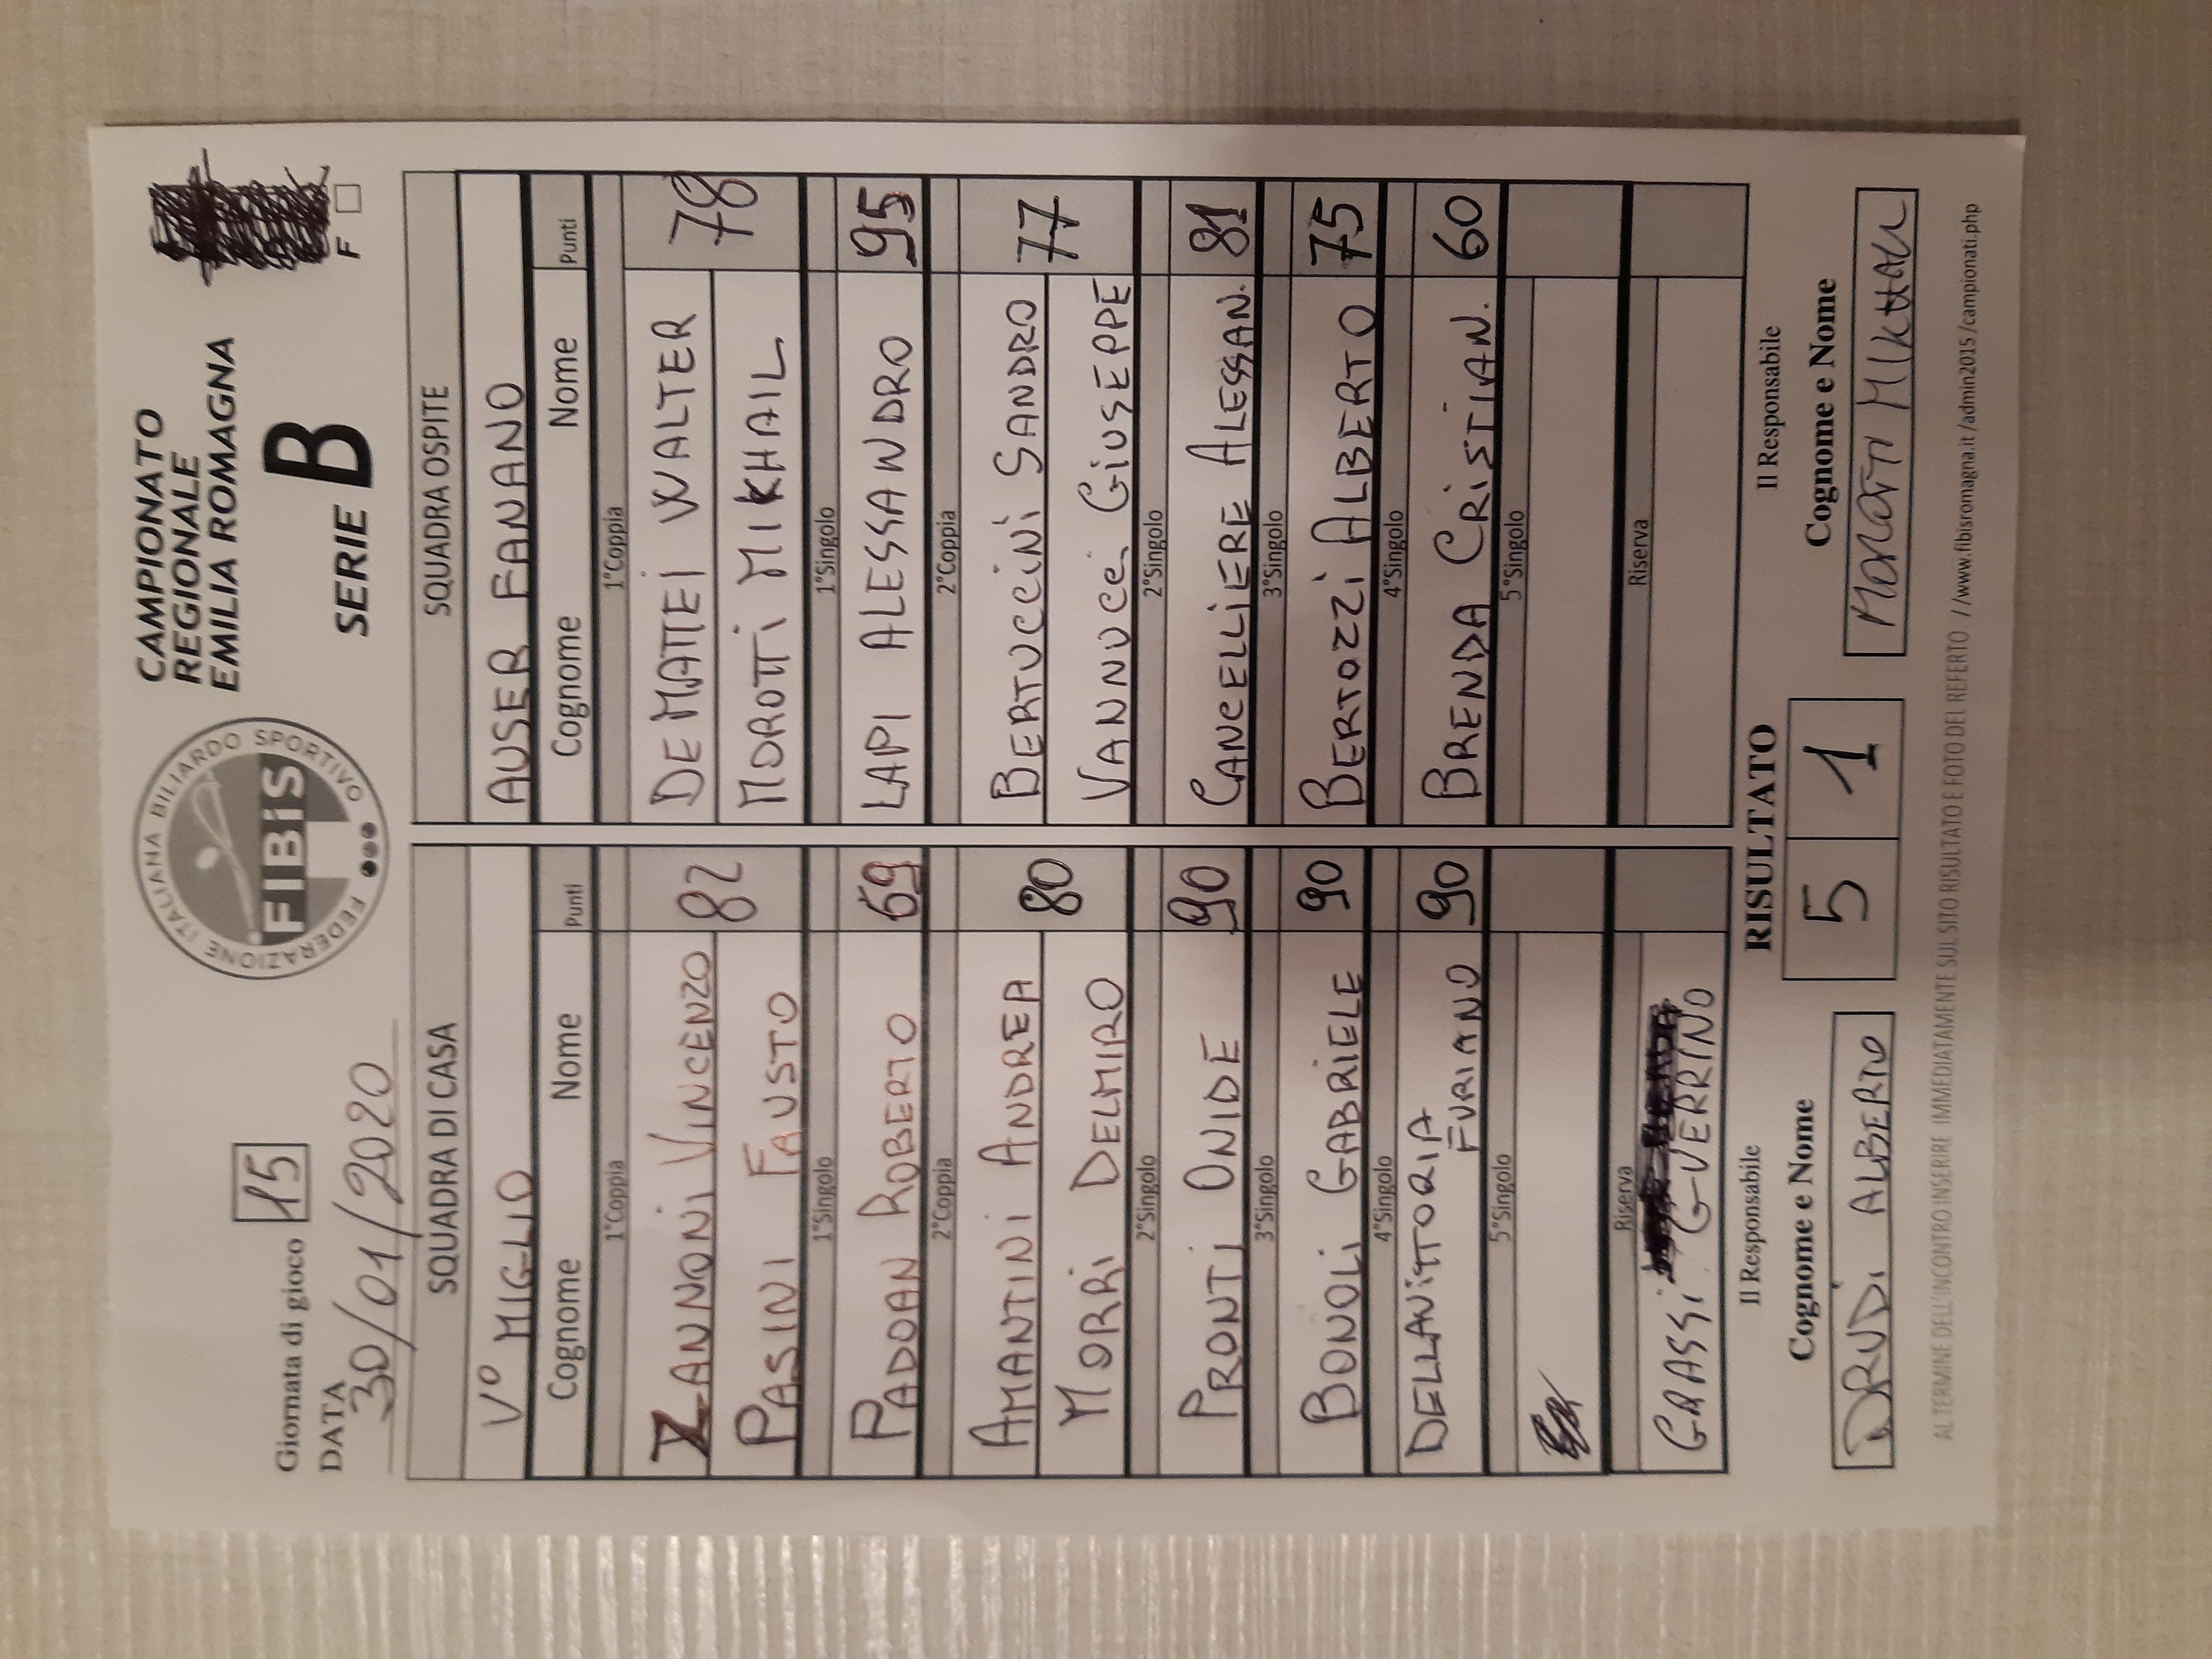 Giornata di gioco 15
DATA
30/01/2020
FEDERAZIONE ITALIANA BILIARDO SPORTIVO
FIBiS
CAMPIONATO
REGIONALE
EMILIA ROMAGNA
SERIE B
F
SQUADRA DI CASA
V° MIGLIO
Cognome Nome Punti
1°Coppia
ZANNONI VINCENZO 82
PASINI FAUSTO
1°Singolo
PADOAN ROBERTO 69
2°Coppia
AMANTINI ANDREA 80
MORRI DELMIRO
2°Singolo
PRONTI ONIDE 90
3°Singolo
BONOLI GABRIELE 90
4°Singolo
DELLAVITTORIA
FURIANO 90
5°Singolo
Riserva
GRASSI GUERRINO
SQUADRA OSPITE
AUSER FANANO
Cognome Nome Punti
1°Coppia
DE MATTEI WALTER 78
MOROTTI MIKHAIL
1°Singolo
LAPI ALESSANDRO 95
2°Coppia
BERTUCCINI SANDRO 77
VANNUCCI GIUSEPPE
2°Singolo
CANCELLIERE ALESSAN. 81
3°Singolo
BERTOZZI ALBERTO 75
4°Singolo
BRENDA CRISTIAN. 60
5°Singolo
Riserva
Il Responsabile
Cognome e Nome
DRUDI ALBERTO
RISULTATO
5 1
Il Responsabile
Cognome e Nome
MOROTTI MIKHAIL
AL TERMINE DELL'INCONTRO INSERIRE IMMEDIATAMENTE SUL SITO RISULTATO E FOTO DEL REFERTO //www.fibisromagna.it/admin2015/campionati.php